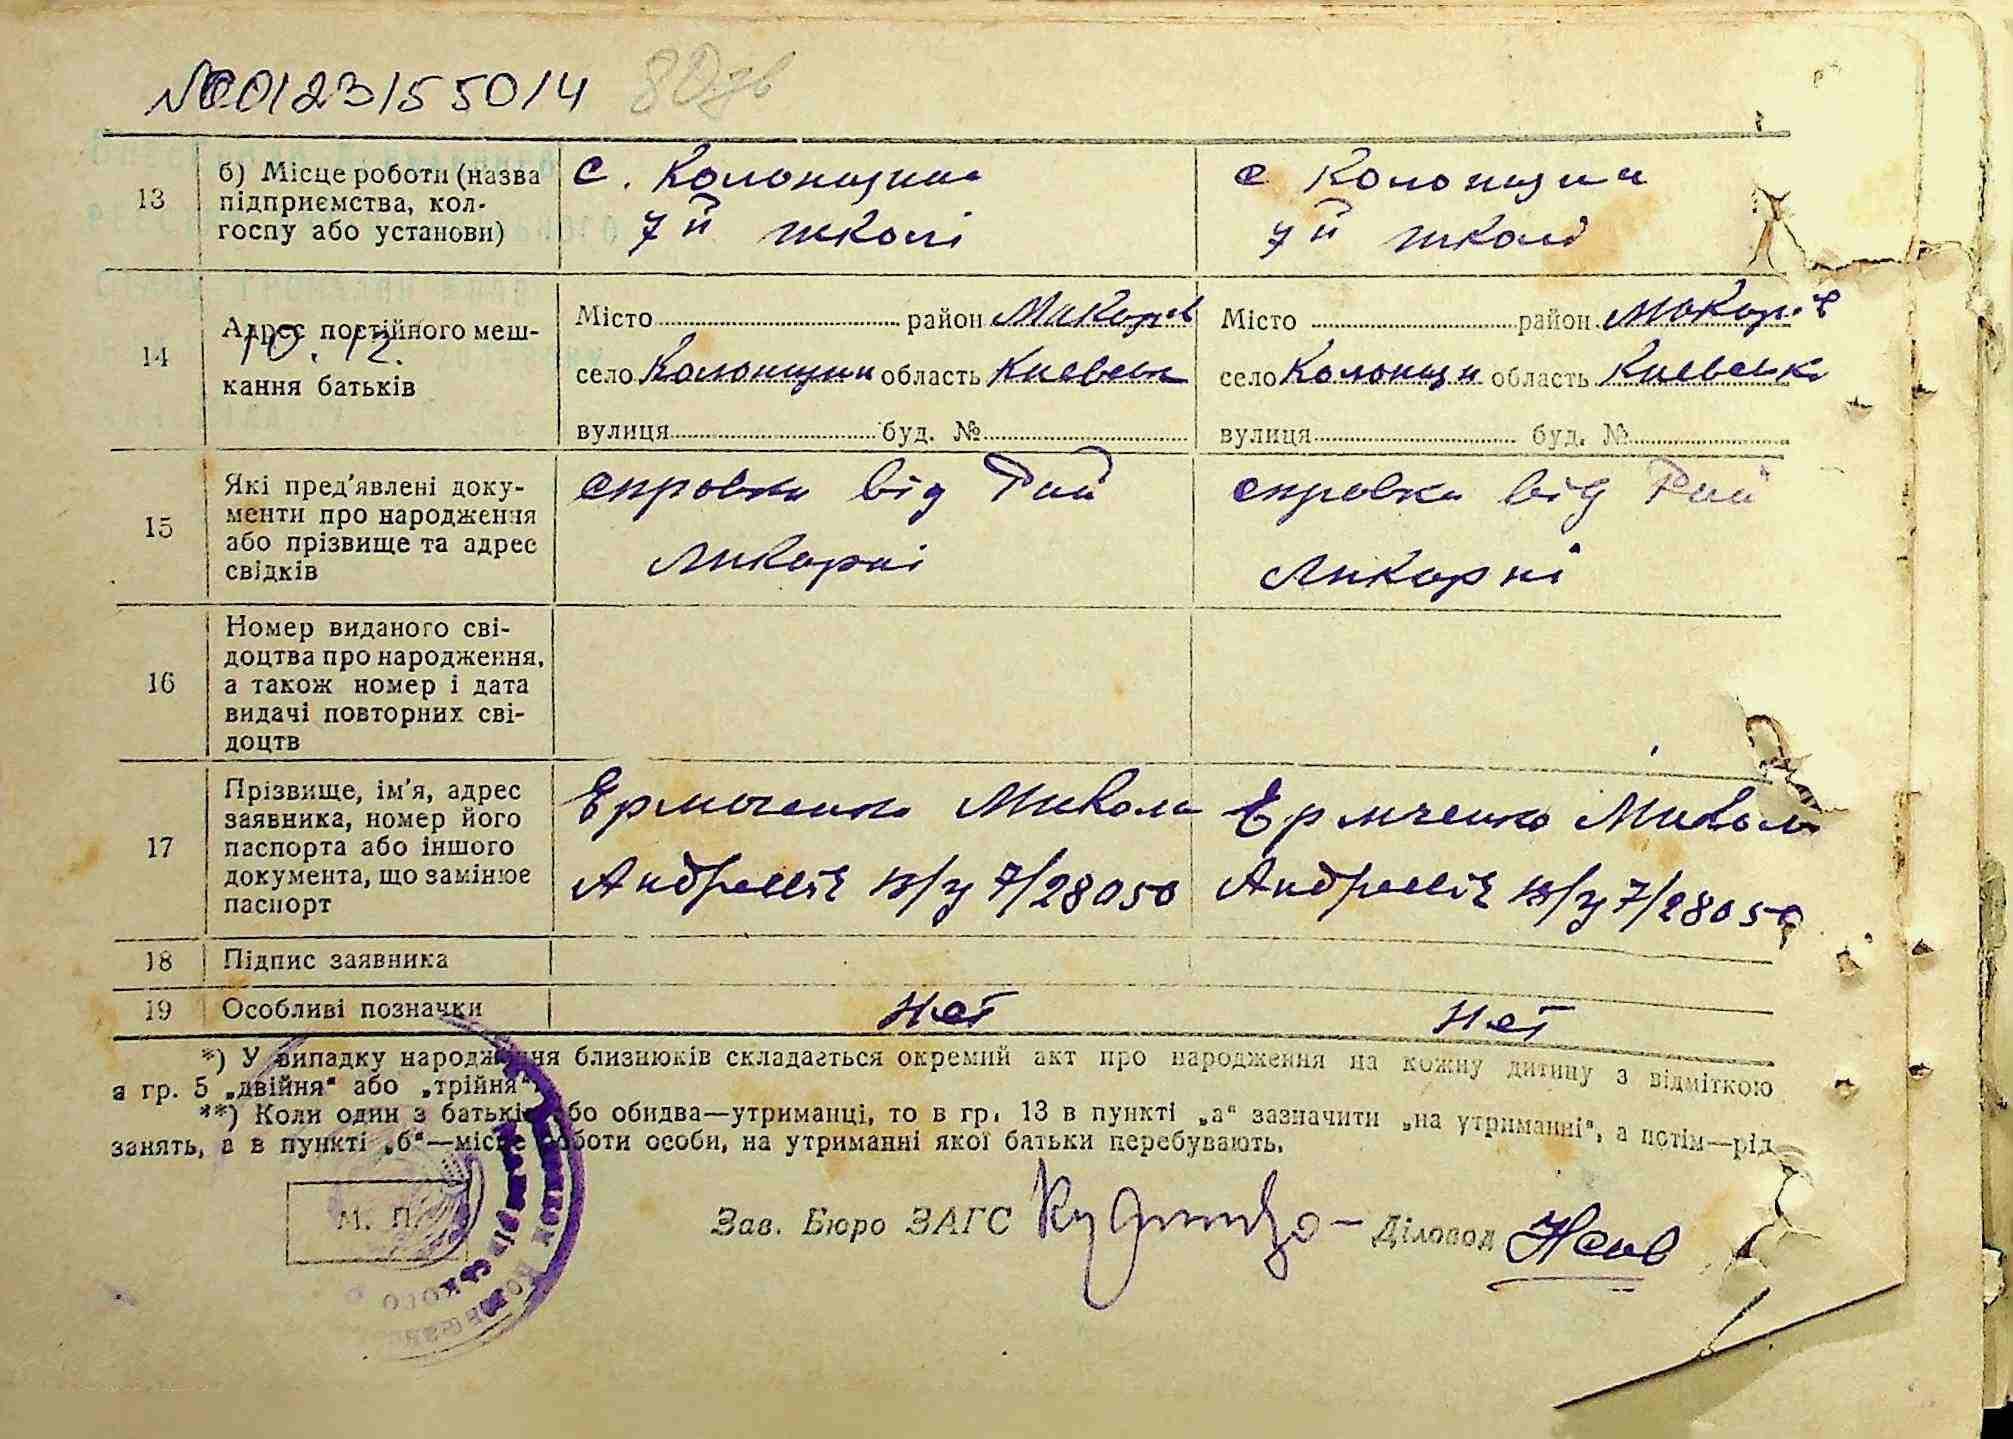 №00123155014
13 б) Місце роботи (назва підприємства, колгоспу або установи)
с. Колонщина
7й школі
с Колонщина
7й школі
14 Адрес постійного мешкання батьків
10. 12.
Місто район Макарів
село Колонщина область Киевськ
вулиця буд. №
Місто район Макарів
село Колонщи область Киевська
вулиця буд. №
15 Які пред'явлені документи про народження або прізвище та адрес свідків
справка від Рай
Ликарні
справка від Рай
Ликарні
16 Номер виданого свідоцтва про народження, а також номер і дата видачі повторних свідоцтв
17 Прізвище, ім'я, адрес заявника, номер його паспорта або іншого документа, що замінює паспорт
Ермыченко Микола
Андреевіч в/у 7/28050
Ермиченко Микола
Андреевіч в/у 7/28050
18 Підпис заявника
19 Особливі позначки
Нет
Нет
*) У випадку народження близнюків складається окремий акт про народження на кожну дитину з відміткою
в гр. 5 „двійня“ або „трійня“.
**) Коли один з батьків або обидва—утриманці, то в гр. 13 в пункті „а“ зазначити „на утриманні“, а потім—рід
занять, а в пункті „б“—місце роботи особи, на утриманні якої батьки перебувають.
М. П.
Зав. Бюро ЗАГС
Діловод